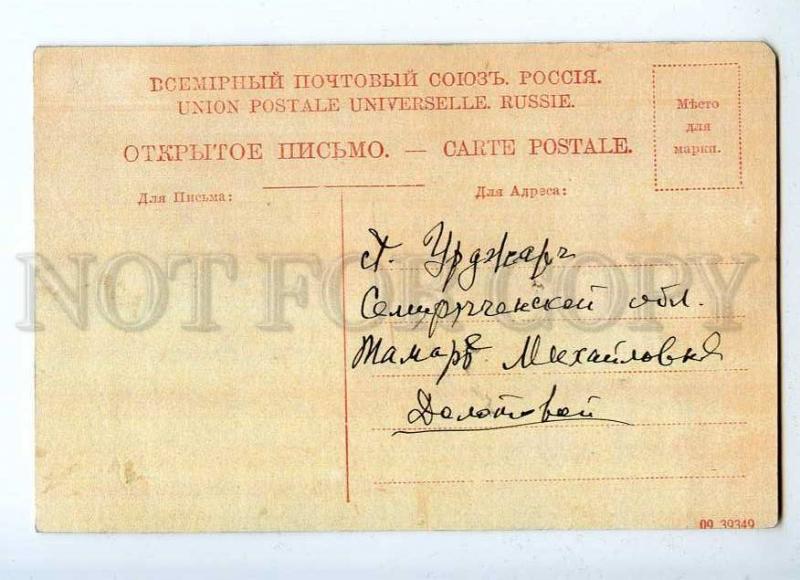 ВСЕМІРНЫЙ ПОЧТОВЫЙ СОЮЗЪ. РОССІЯ.
UNION POSTALE UNIVERSELLE. RUSSIE.
ОТКРЫТОЕ ПИСЬМО. — CARTE POSTALE.
Мѣсто
для
марки.
Для Письма:
Для Адреса:
Урджаръ
Семирѣченской обл.
Тамарѣ Михайловнѣ
Долотовой
NOT FOR COPY
09 39349